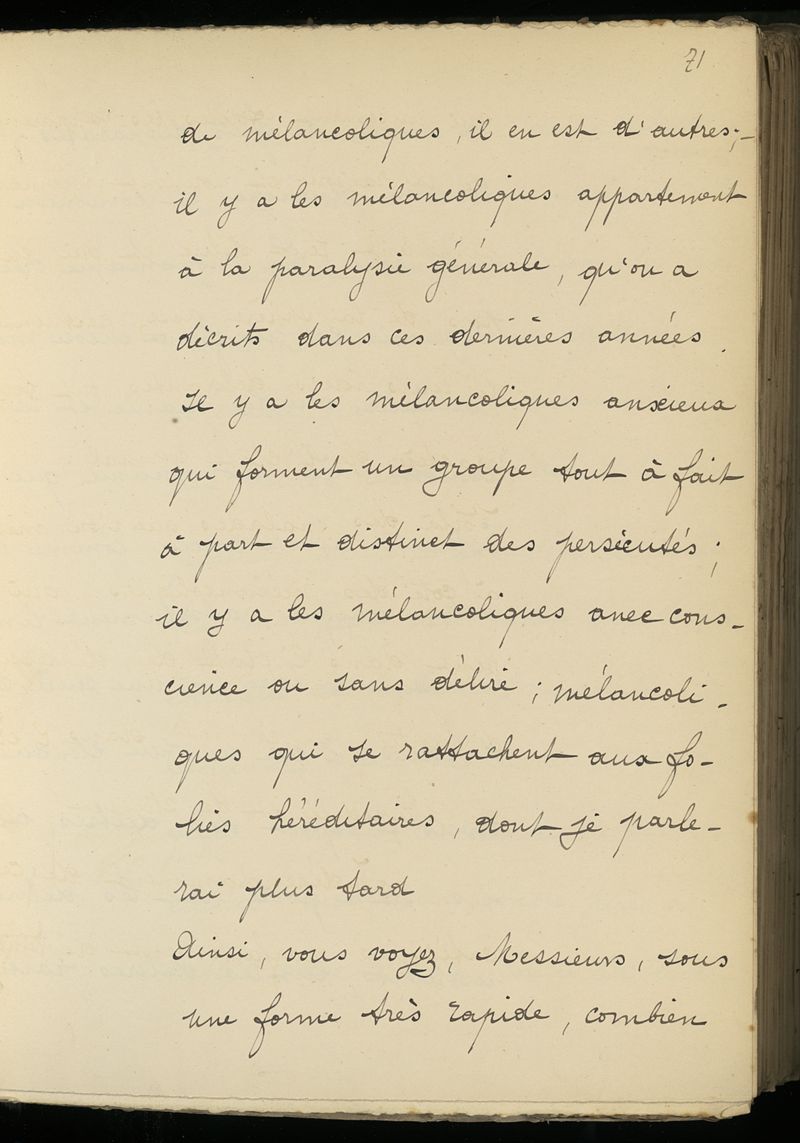 71
de mélancoliques, il en est d'autres;—
il y a les mélancoliques appartenant
à la paralysie générale, qu'on a
décrits dans ces dernières années.
Il y a les mélancoliques anxieux
qui forment un groupe tout à fait
à part et distinct des persécutés;
il y a les mélancoliques avec cons-
cience ou sans délire; mélancoli-
ques qui se rattachent aux fo-
lies héréditaires, dont je parle-
rai plus tard
Ainsi, vous voyez, Messieurs, sous
une forme très rapide, combien